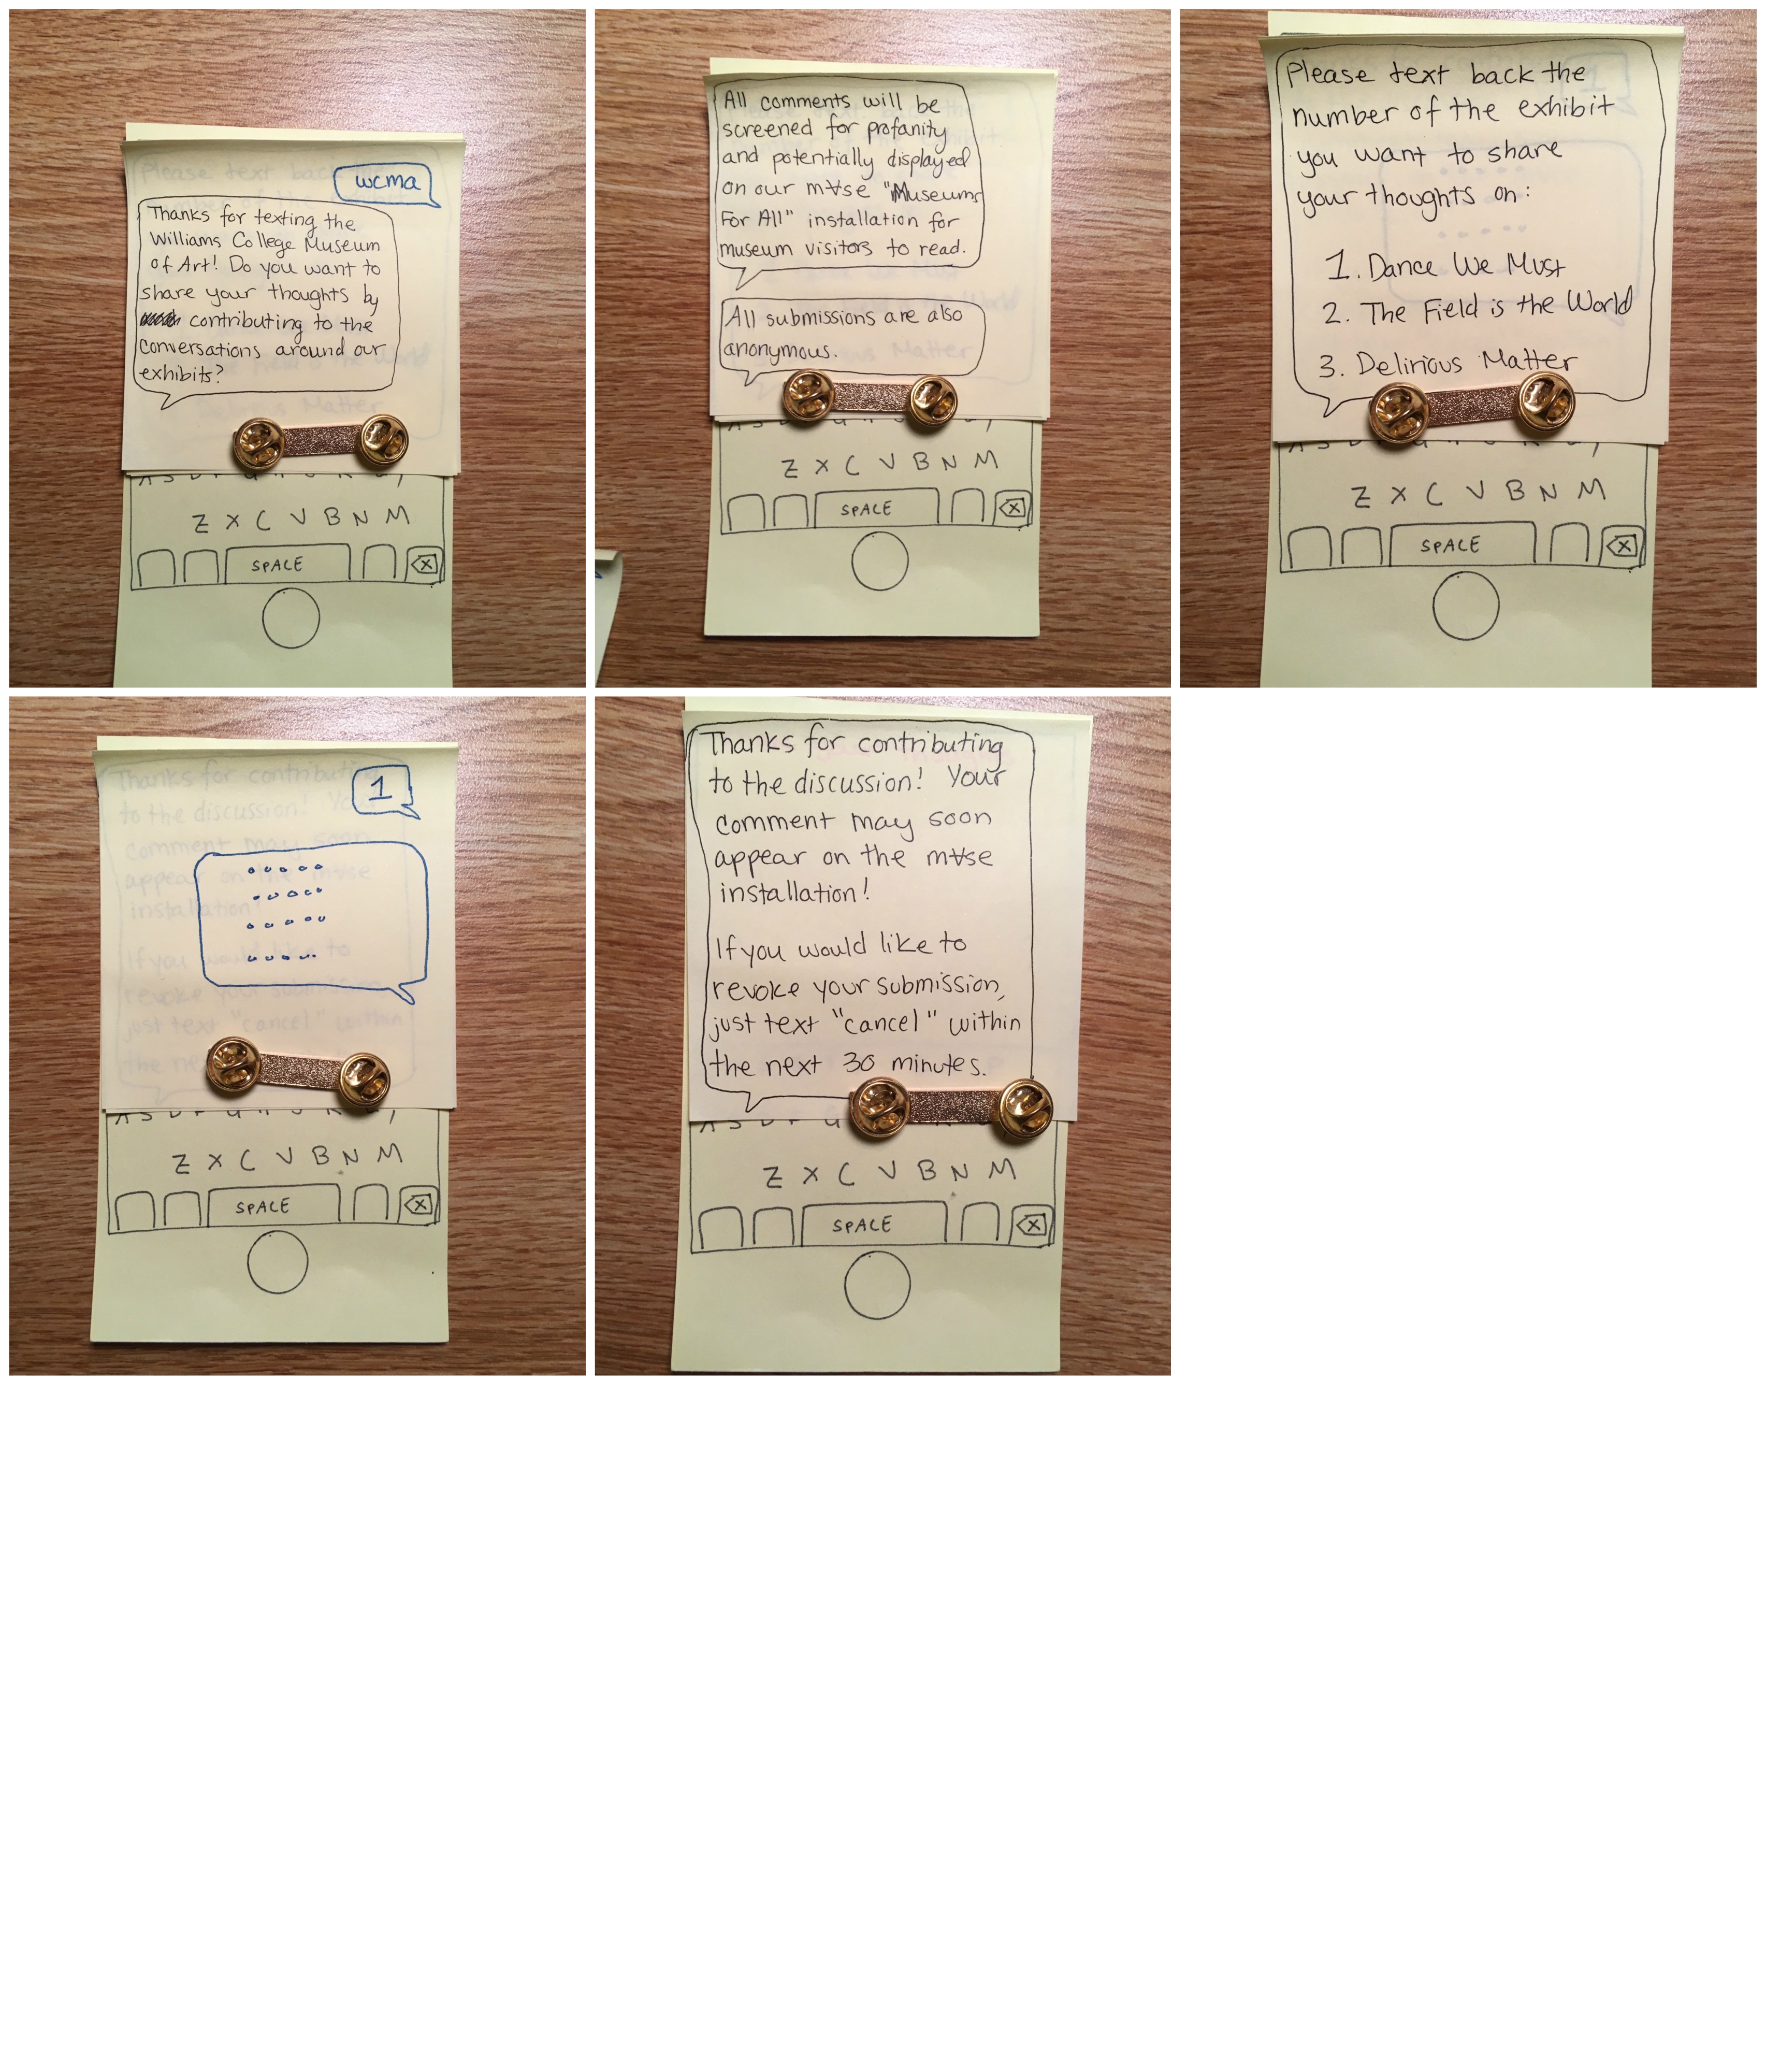 wcma
Thanks for texting the
Williams College Museum
of Art! Do you want to
share your thoughts by
contributing to the
conversations around our
exhibits?
Z X C V B N M
SPACE
X
All comments will be
screened for profanity
and potentially displayed
on our m∀se "Museums
For All" installation for
museum visitors to read.
All submissions are also
anonymous.
Z X C V B N M
SPACE
X
Please text back the
number of the exhibit
you want to share
your thoughts on:
1. Dance We Must
2. The Field is the World
3. Delirious Matter
Z X C V B N M
SPACE
X
1
Z X C V B N M
SPACE
X
Thanks for contributing
to the discussion! Your
comment may soon
appear on the m∀se
installation!
If you would like to
revoke your submission,
just text "cancel" within
the next 30 minutes.
Z X C V B N M
SPACE
X